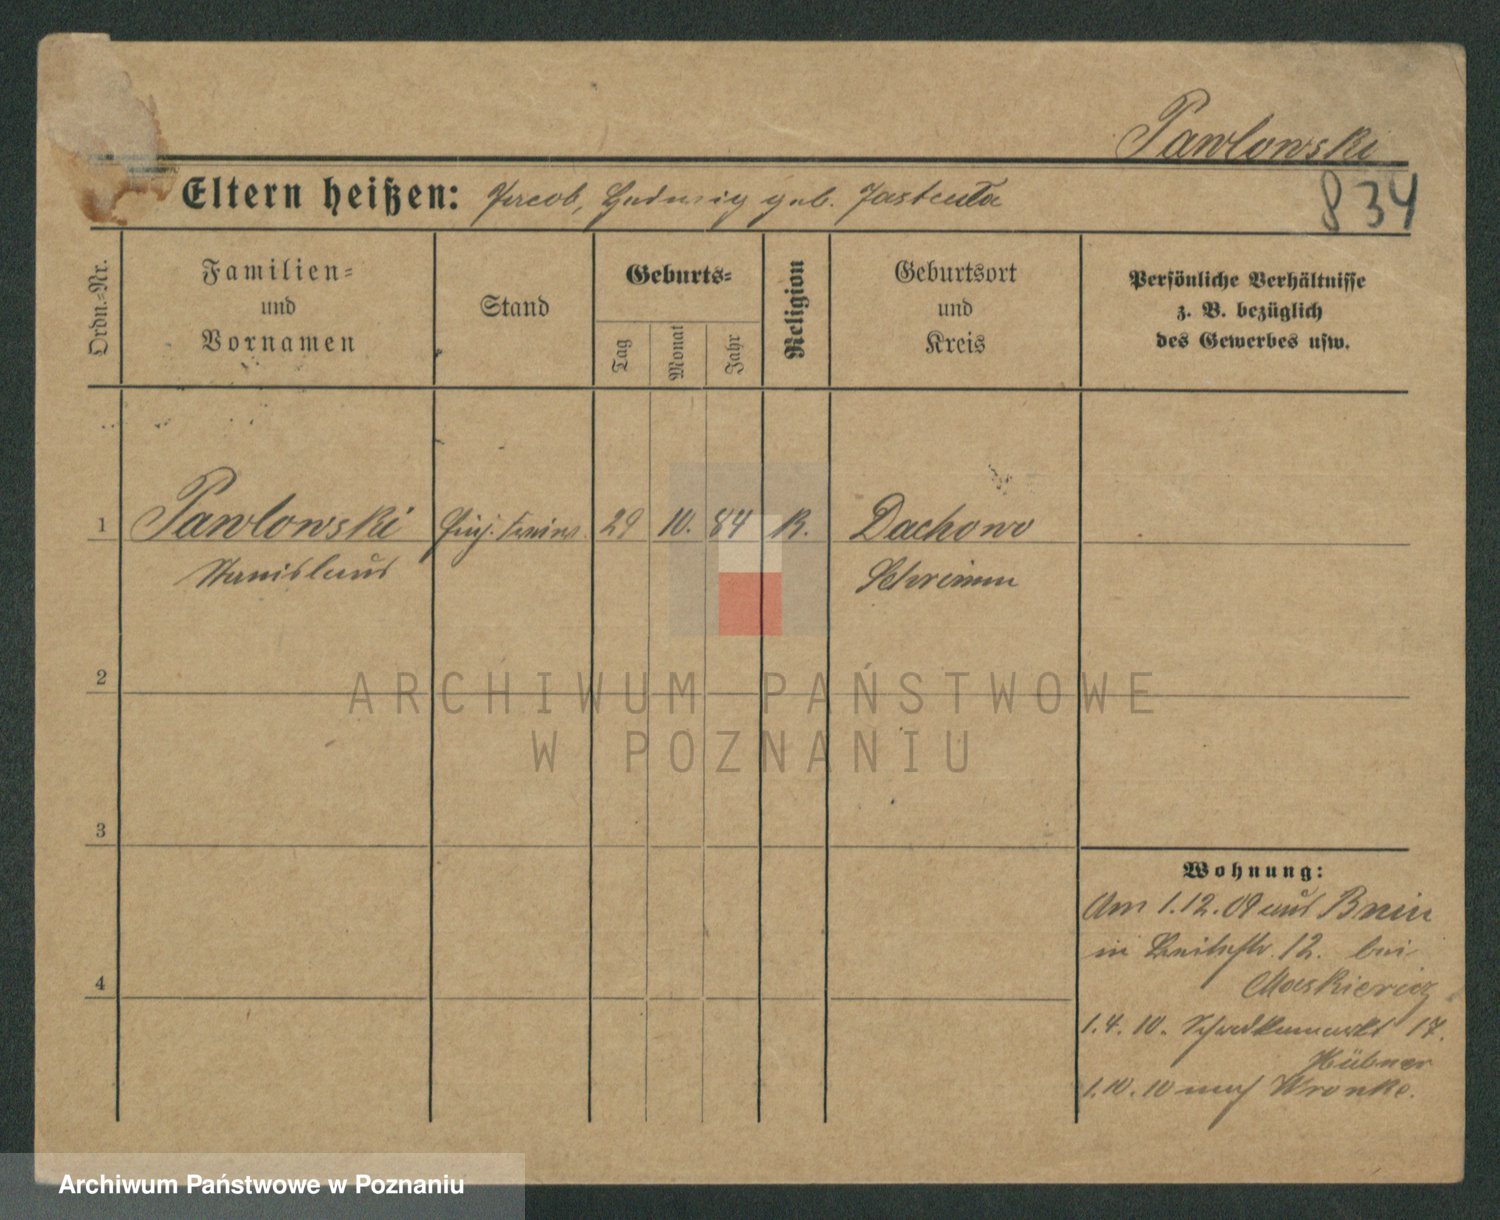 Pawlowski
Eltern heißen: Jacob, Hedwig geb.
834
Ordn.-Nr.
Familien-
und
Vornamen
Stand
Geburts-
Tag
Monat
Jahr
Religion
Geburtsort
und
Kreis
Persönliche Verhältnisse
z. B. bezüglich
des Gewerbes usw.
1 Pawlowski 29 10. 84 K. Dachowo
Stanislaus Schrimm
2
ARCHIWUM PAŃSTWOWE
W POZNANIU
3
Wohnung:
Am 1.12.09 aus Bnin
in 12. bei
4
1.4.10. 17.
Hübner
1.10.10 nach Wronke.
Archiwum Państwowe w Poznaniu